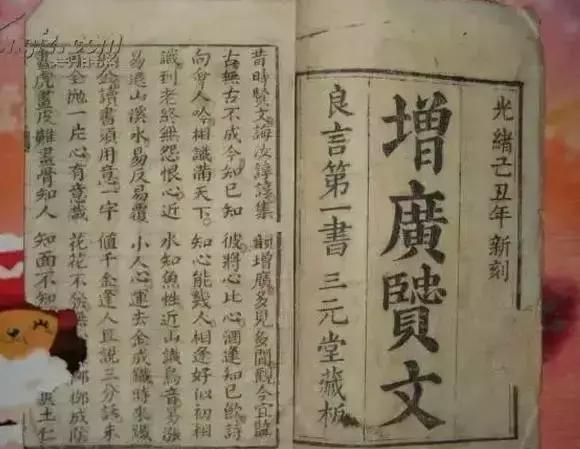 光緒己丑年新刻
增廣贒文
良言第一書 三元堂藏板
昔時賢文誨汝諄諄集 韻增廣多見多聞觀今宜鑒
古無古不成今知已知 彼將心比心酒逢知己飲詩
向會人吟相識滿天下 知心能幾人相逢好似初相
識到老終無怨恨心近 水知魚性近山識鳥音易漲
易退山溪水易反易覆 小人心運去金成鐵時來鐵
似金讀書須用意一字 值千金逢人且說三分話未
可全拋一片心有意栽 花花不發無 柳成陰
畫虎畫皮難畫骨知人 知面不知 土仁